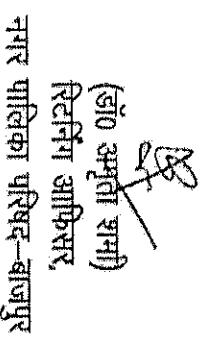 (डॉ0 अमृता शर्मा)
रिटर्निंग आफिसर,
नगर पालिका परिषद–बाजपुर